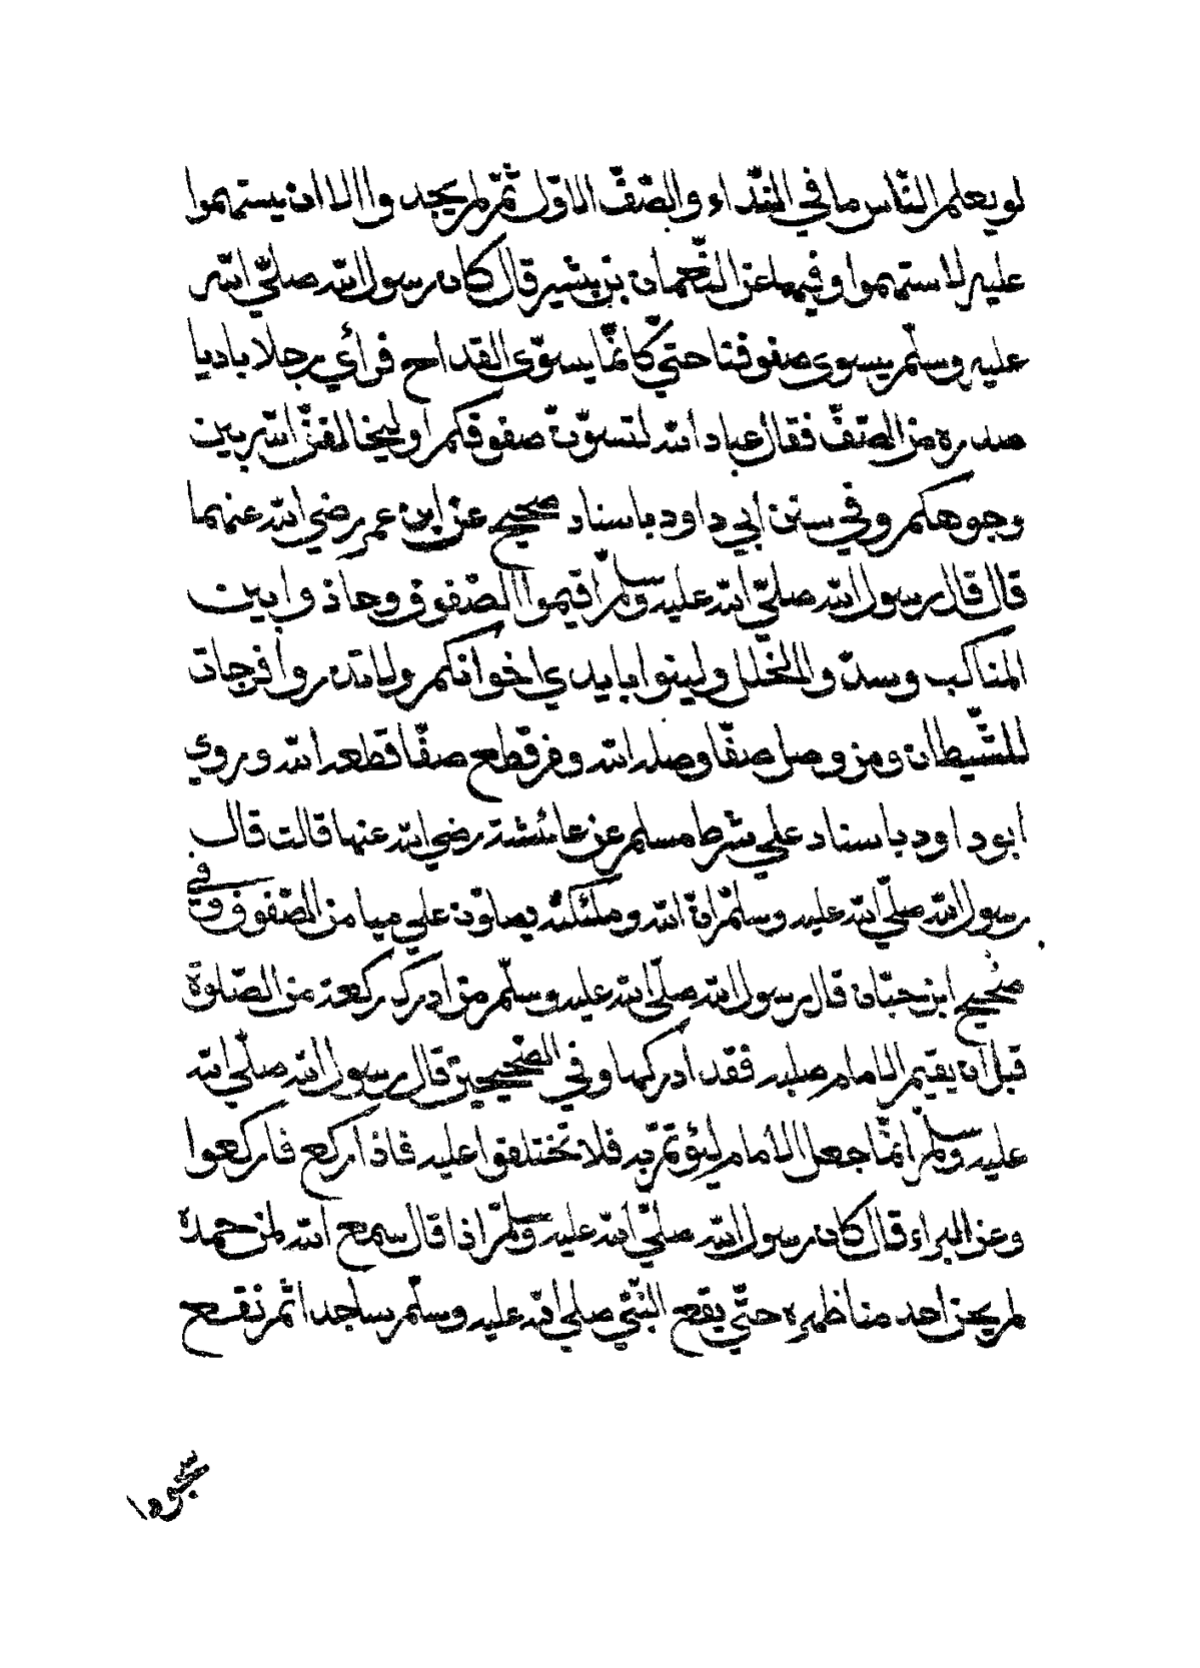 لو يعلم النّاس ما في النّداء والصّفّ الاوّل ثمّ لم يجدوا الا ان يستهموا
عليه لاستهموا وفيهما عن النّعمان بن بشير قال كان رسول الله صلّي الله
عليه وسلّم يسوي صفوفنا حتي كانّما يسوّي القداح فرأي رجلا باديا
صدره من الصّفّ فقال عباد الله لتسوّنّ صفوفكم او ليخالفنّ الله بين
وجوهكم وفي سنن ابي داود باسناد صحيح عن ابن عمر رضي الله عنهما
قال قال رسول الله صلّي الله عليه وسلم اقيموا الصّفوف وحاذوا بين
المناكب وسدّوا الخلل ولينوا بايدي اخوانكم ولا تذروا فرجات
للشّيطان ومن وصل صفّا وصله الله ومن قطع صفّا قطعه الله وروي
ابو داود باسناد علي شرط مسلم عن عائشة رضي الله عنها قالت قال
رسول الله صلّي الله عليه وسلّم انّ الله وملئكته يصلّون علي ميامن الصّفوف وفي
صحيح ابن حبّان قال رسول الله صلّي الله عليه وسلّم من ادرك ركعة من الصّلوة
قبل ان يقيم الامام صلبه فقد ادركها وفي الصّحيحين قال رسول الله صلّي الله
عليه وسلم انّما جعل الامام ليؤتمّ به فلا تختلفوا عليه فاذا ركع فاركعوا
وعن البراء قال كان رسول الله صلّي الله عليه وسلّم اذا قال سمع الله لمن حمده
لم يحن احد منا ظهره حتّي يقع النّبيّ صلي الله عليه وسلّم ساجدا ثمّ نقع
سجودا